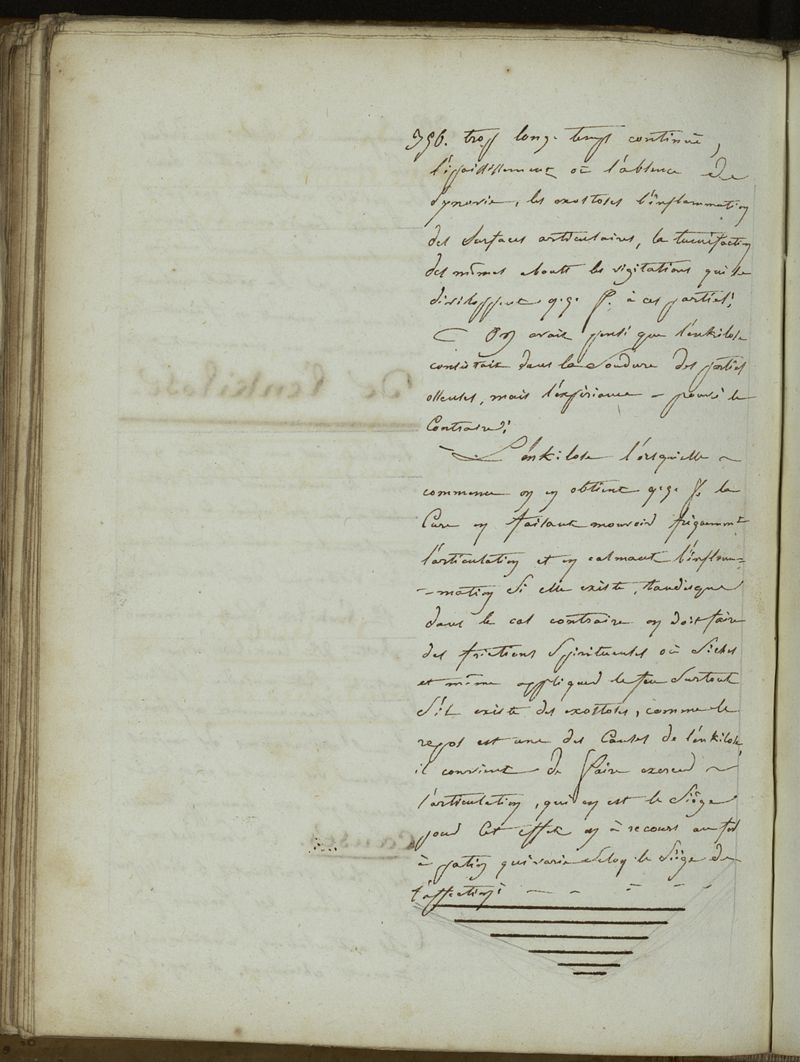 396. trop long-temps continuë,
l'épaississement où l'absence de
synovie, les exostoses l'inflammation
des surfaces articulaires, la tumefaction
des mêmes abouts les végétations qui se
développent q.q.e f. à ces parties;
On avait pensé que l'enkilose
consistait dans la soudure des parties
osseuses, mais l'expérience prouve le
Contraire;
L'énkilose l'orsquelle
commence on en obtient q.q.e f. la
Cure en faisant mouvoir fréquemmt
l'articulation et en calmant l'inflam=
=mation si elle existe, tandisque
dans le cas contraire on doit faire
des frictions spiritueuses où séches
et même appliquer le feu surtout
s'il existe des exostoses, comme le
repos est une des Causes de l'énkilose,
il convient de faire exercer
l'articulation, qui en est le siège
pour cet effet on à recours au fer
à patin qui varie selon le siège de
l'affection;
De l'enkilose
Causes.